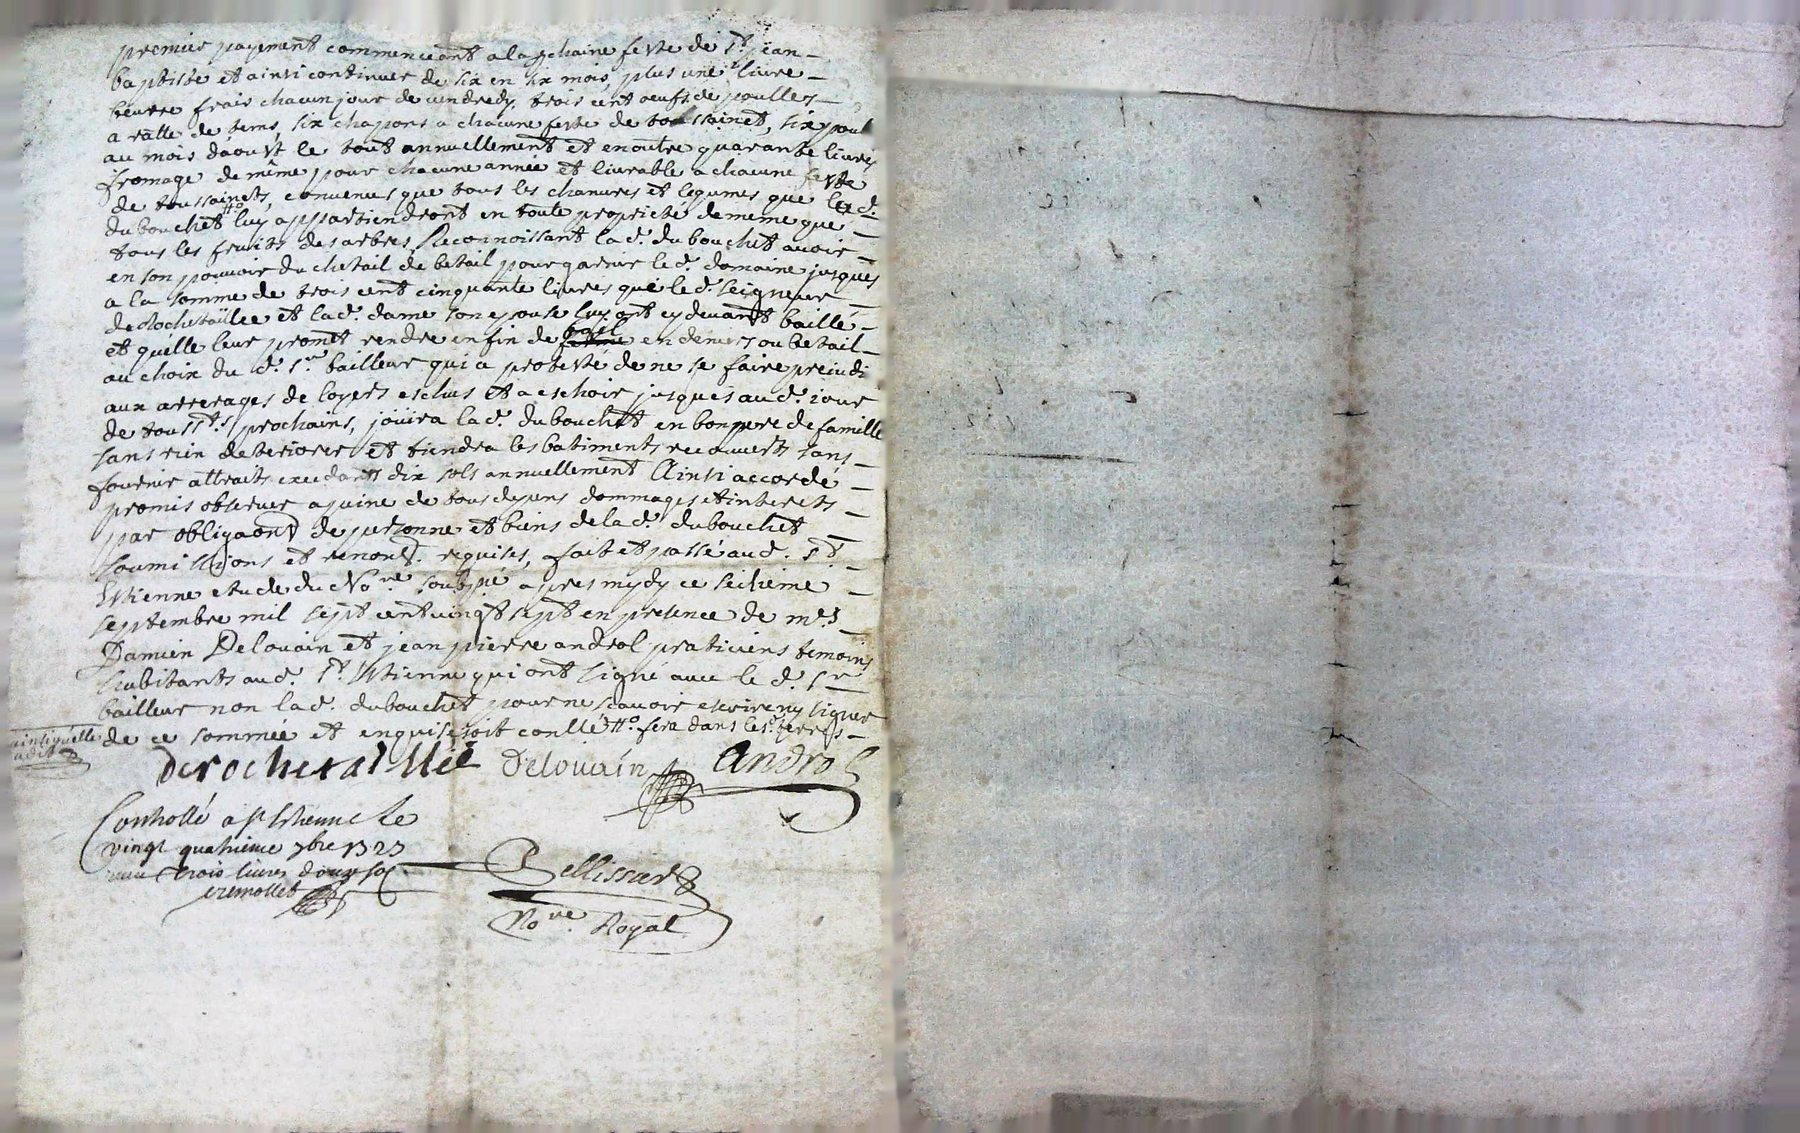 premier payement commenceant a la pchaine feste de St jean
baptiste et ainsi continuer de six en six mois, plus une livre
beurre frais chacun jour de vendredy, trois cent oeufs de poulles
a ratte de tems, six chapons a chacune feste de toussainct, six poul
au mois daoust le tout annuellement et en outre quarante livres
fromage de même pour chacune année et livrable a chacune feste
de toussainets, convenus que tous les chanvres et legumes que la d.
dubouchet luy appartiendront en toute proprieté de meme que
tous les fruits des arbres, Reconnoissant la d. dubouchet avoir
en son pouvoir du chetail de betail pour garnir le d. domaine jusques
a la somme de trois cent cinquante livres que le d. seigneur
de Rochetaillee et la d. dame son epouse luy ont cy devant baillé
et quelle leur promet rendre en fin de bail en deniers ou betail
au choix du d. sr. bailleur qui a protesté de ne se faire preiudi
aux arrerages de loyers eschus et a eschoir jusques au d. iour
de toussts. prochains, joüira la d. dubouchet en bon pere de famille
sans rien deteriorer et tiendra les batiments recouverts sans
fournir attraits excedants dix sols annuellement Ainsi accordé
promis observer a peine de tous depens dommages et interets
par obligaons de personne et biens de la d. dubouchet
soumissions et renons. requises, fait et passé au d. St.
Estienne etude du Nore. soubsne apres mydy ce seizieme
septembre mil sept cent vingt sept en presence de mes
Damien Delouain et jean pierre androl praticiens temoins
habitants au d. St. Estienne qui ont signé avec le d. sr
bailleur non la d. dubouchet pour ne scavoir escrire ny signer
de ce sommée et enquise soit conllé fera dans les terres
derochetaillée Delouain Androl
Controllé a St Estienne le
vingt quatrieme 7bre 1727
trois livres douze sol
Pellissard
Nore. Royal